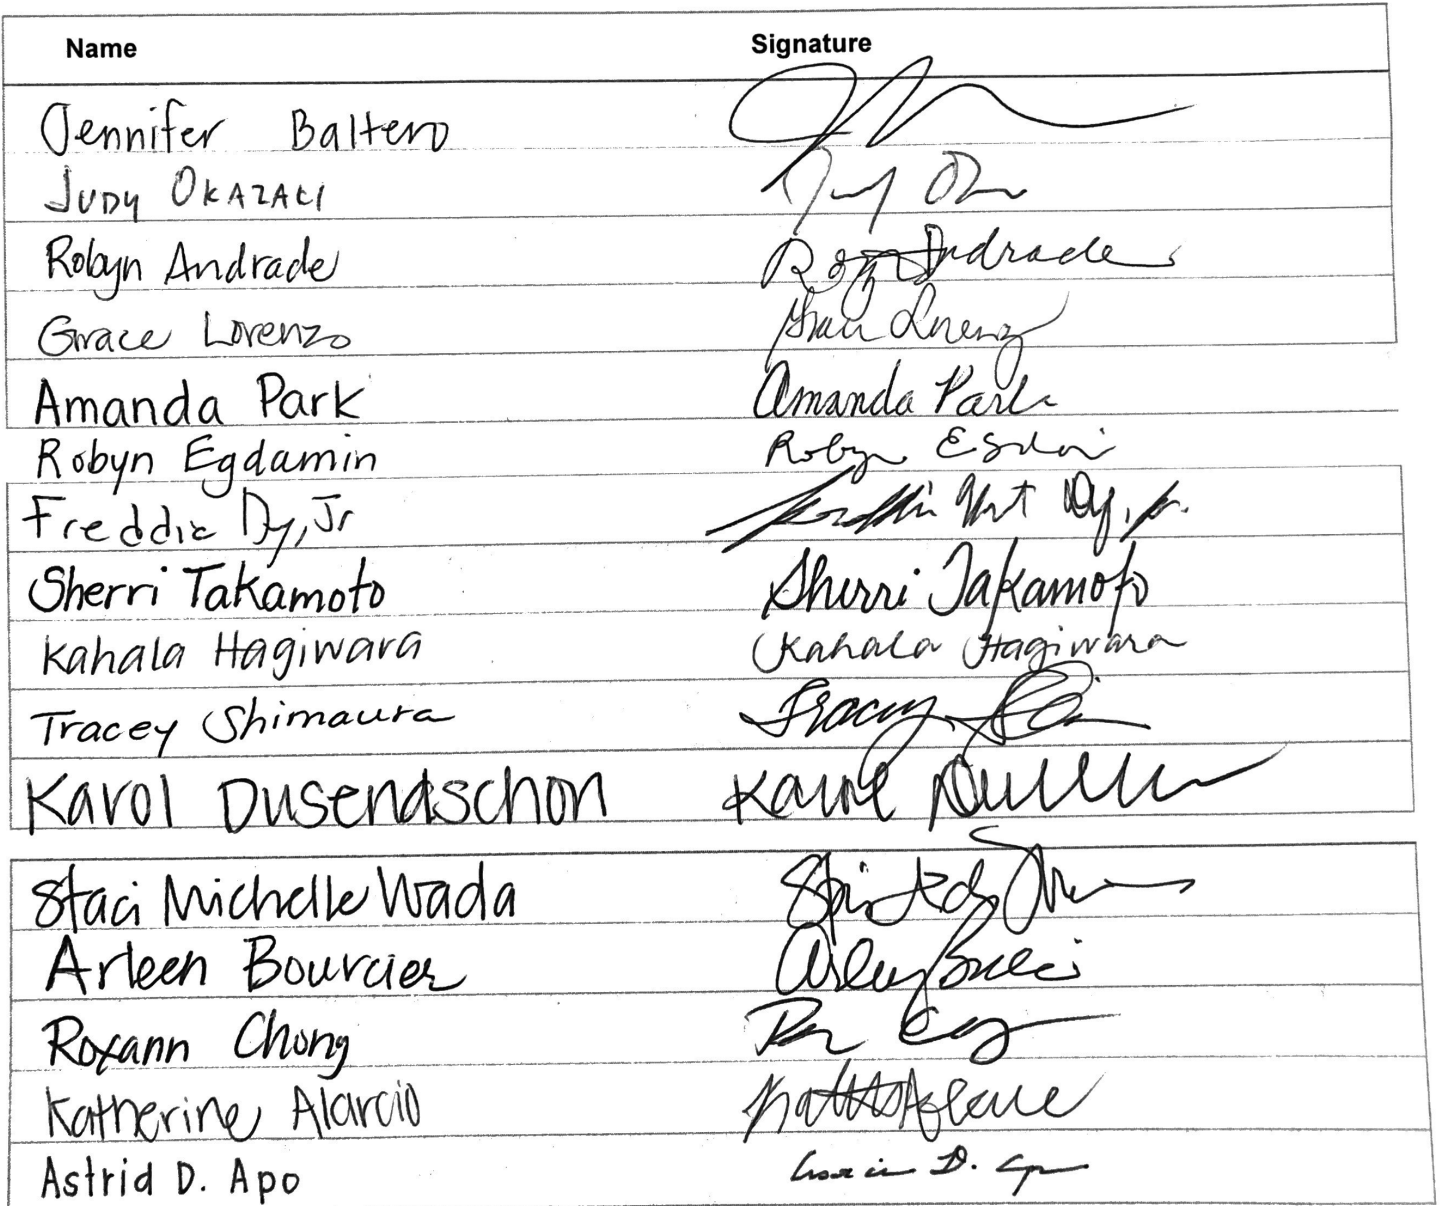 Name Signature
Jennifer Baltero
Judy Okazaki
Robyn Andrade Robyn Andrade
Grace Lorenzo Grace Lorenzo
Amanda Park Amanda Park
Robyn Egdamin Robyn
Freddie Dy, Jr Dy, Jr.
Sherri Takamoto Sherri Takamoto
Kahala Hagiwara Kahala Hagiwara
Tracey Shimaura Tracey
Karol Dusendschon Karol
Staci Michelle Wada
Arleen Bourcier
Roxann Chong
Katherine Alarcio
Astrid D. Apo D. Apo